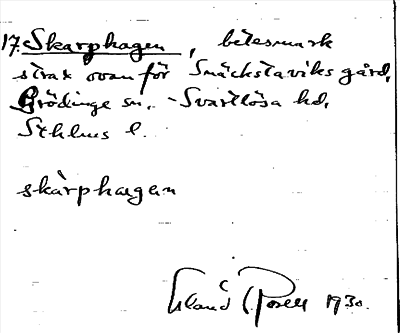 17. Skarphagen, betesmark
strax ovanför Snäckstaviks gård,
Grödinge sn. Svartlösa hd,
Sthlms l.
skàrphagan
1930.